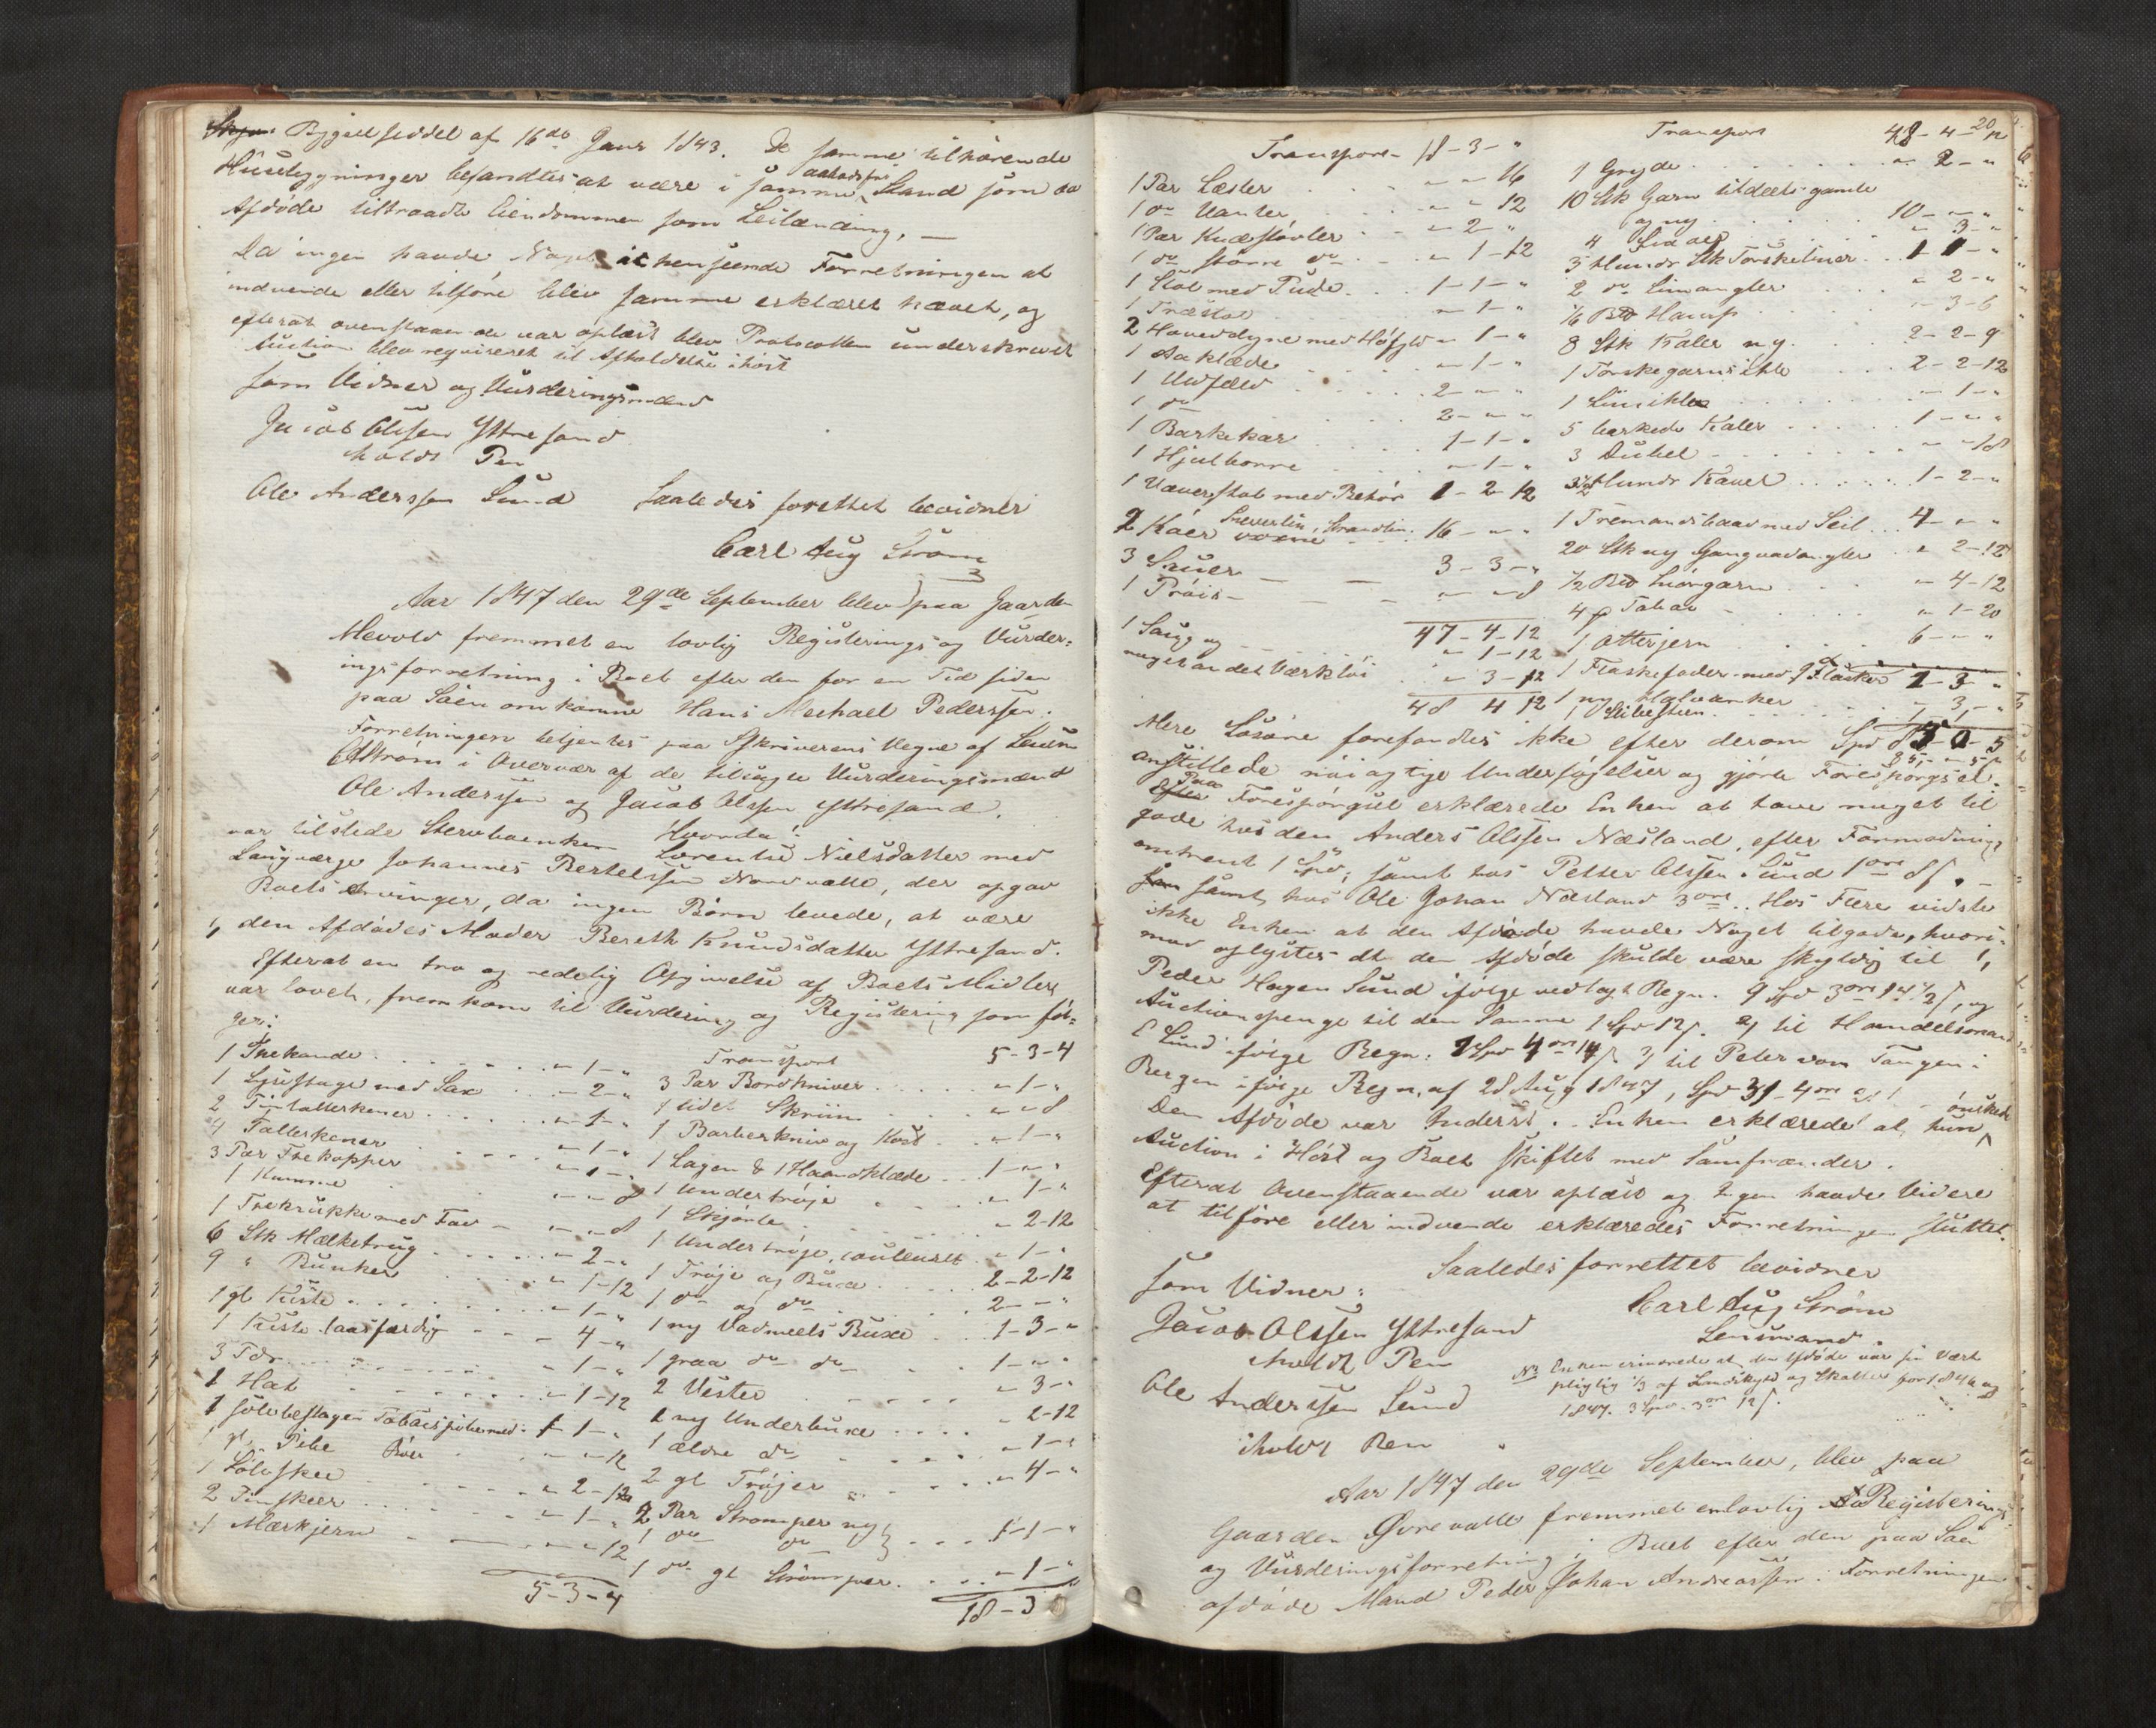 Bygselseddel af 16de Janr 1843. De samme tilhørende
Huusbygninger befandtes at være i samme aabodsfri Stand som da
Afdøde tiltraadte Eiendommen som Leilænding. —
Da ingen havde Noget i henseende Forretningen at
indvende eller tilføre blev samme erklæret hævet, og
efterat ovenstaaende var oplæst blev Protocollen underskrevet
Auction blev reqvireret til Afholdelse i høst
Som Vidner og Vurderingsmænd
Jacob Olsen Yttresand
holdt Pen
Ole Anderssen Sund Saaledes forrettet bevidner
Carl Aug Strøm
Aar 1847 den 29de September blev paa Gaarden
Mevold fremmet en lovlig Registerings og Vurder=
ingsforretning i Boet efter den for en Tid siden
paa Søen omkomne Hans Mechael Pederssen.
Forretningen betjentes paa Skriverens Vegne af Lensm
CAStrøm i Overvær af de tilsagte Vurderingsmænd
Ole Anderssen og Jacob Olssen Yttresand.
Hvorda:
var tilstede Stervboenken Lorentse Nielsdatter med
Laugværge Johannes Bertelssen Nordvalle, der opgav
Boets Arvinger, da ingen Børn levede, at være
1, den Afdødes Moder Bereth Knudsdatter Yttresand.
Efterat en tro og redelig Opgivelse af Boets Midler
var lovet, fremkom til Vurdering og Registering som føl=
ger:
1 Theekande . . . . " 1 - "
1 Lysestage med Sax . . " 2 - "
2 Tintallerkener . . . . " 1 - "
4 Tallerkener . . . . " 1 - "
3 Par Thekopper " 1 - "
1 Kumme " - " 8
1 Thekrukke med Fad - " - " 8
6 Stk Melketrug . . . . " 2 - "
9 " Bunker . . . " 1 - 12
1 gl Kiste . . . . " 1 - "
1 Kiste laasfærdig - - 4 - "
3 Tdr . . . . " 1 - "
1 Hat . . . . " 1 - 12
1 sølvbeslagen Tobacspibe med " 1 - "
1 gl. Pibe Rør . . " - " 12
1 Sølvskee . . . " 2 - 12
2 Tinskeer . . . . " 1 - "
1 Mærkjern . . . . " - " 12
5 - 3 - 4
Transport 5 - 3 - 4
3 Par Bordkniver . . . . " 1 - "
1 lidet Skriin . . . . " - " 8
1 Barberkniv og Kost . . " 1 - "
1 Lagen & 1 Haandklæde . . 1 - " - "
1 Undertrøje . . . . " 1 - "
1 Skjorte . . . . " 2 - 12
1 Undertrøje, couleurt . " 1 - "
1 Trøje og Buxe . . . . 2 - 2 - 12
1 do og do . . . . 2 - " - "
1 ny Vadmels Buxe . . 1 - 3 - "
1 graa do do . . 1 - " - "
2 Vester . . . . " 3 - "
1 ny Underbuxe . . . . " 2 - 12
1 ældre do . . . . " 1 - "
2 gl Trøjer . . . . " 4 - "
2 Par Strømper ny
1 do do . . . 1 - 1 - "
1 do gl Strømper . . . . " 1 - "
18 - 3
Transport - 18 - 3 - "
1 Par Læster . . . . " - " 16
1 do Vanter . . . . " - " 12
1 Par Knæstøvler . . " 2 - "
1 do større do . . . " 1 - 12
1 Stol med Pude . . 1 - 1 - "
1 Træstol . . . . " 1 - "
2 Hoveddyne med Høfyld " 1 - "
1 Aaklæde . . . . " 1 - "
1 Udfæld . . . . 2 - " - "
1 do . . . . 2 - " - "
1 Barkekar . . . . 1 - 1 - "
1 Hjulborre . . . . " 1 - "
1 Væverstol med Behør 1 - 2 - 12
Sneverlin, Strandlin
2 Køer voxne . . . 16 - " - "
3 Sauer — — 3 - 3 - "
1 Prøis - - - - " - " 8
47 - 4 - 12
1 Saug og . . . . " 1 - 12
noget andet Værktøi . . " 3 - 12
48 4 12
Transport 48 - 4 - 20
1 Gryde . . . . " 2 - "
10 Stk Garn tildeels gamle
og ny . . . . 10 - " - "
4 . . . . " 3 - "
3 Hundr Stk Torskeliner . . 1 1 - "
2 do Liinangler . . . . " 2 - "
1/6 Bd Hamp . . . . " 3 - 6
8 Stk Kaler ny . . . . 2 - 2 - 9
1 Torskegarnsihle . . . 2 - 2 - 12
1 Liinihle . . . . " 1 - "
5 barkede Kaler . . . . 1 - " - "
3 Dubel . . . . " - " 18
3½ Hundr Kavel . . . . 1 - 2 - "
1 Tremandsbaad med Seil . . 4 - " - "
20 Stk ny Gangvadangler . . " 2 - 12
½ Bd Sniørgarn . . . " 4 - 12
4 ₰ Tobac . . . . " 1 - 20
1 Otterjern . . . . 6 - " - "
1 Flaskefoder med 9 Flasker 1 - 3 - "
1 ny Halvanker . . . . " 3 - "
1 Slibesteen . . . .
Mere Løsøre forefandtes ikke efter derom Spd 85 - 0 - 5
anstillede nøiagtige Undersøgelser og gjorte Forespørgsel.
Paa Forespørgsel erklærede Enken at have noget til
gode hos den Anders Olssen Næsland, efter Formodning
omtrent 1 Spd, samt hos Petter Olssen Sund 1 ort 8 ſ. —
samt hos Ole Johan Næsland 3 ort. Hos Flere vidste
ikke Enken at den Afdøde havde Noget tilgode, hvori=
mod oplystes at den Afdøde skulde være skyldig til 1,
Peder Hagen Sund ifølge vedlagt Regn. 9 Spd 3 ort 14½ ſ, og
Auctionspenge til den Samme 1 Spd 12 ſ. 2) til Handelsmand
E Lund ifølge Regn. 2 Spd 4 ort 14 ſ 3) til Peter von Tangen i
Bergen ifølge Regn, af 28 Aug 1847, Spd 31 - 4 ort
Den Afdøde var Inderst. Enken erklærede at hun ønskede
Auction i Høst og Boet skiftet med Samfrænder.
Efterat Ovenstaaende var oplæst og Ingen havde Videre
at tilføre eller indvende erklæredes Forretningen sluttet.
Saaledes forrettet bevidner
Som Vidner: Carl Aug Strøm
Jacob Olssen Yttresand Lensmand.
iholdt Pen
NB Enken erindrede at den Afdøde var sin Vært
pligtig 1/3 af Landskyld og Skatter for 1846 og
1847. 3 Spd. 3 ort 12 ſ.
Ole Anderssen Sund
iholdt Pen
Aar 1847 den 29de September, blev paa
Gaarden Øvrevalle fremmet en lovlig Registerings
og Vurderingsforretning i Boet efter den paa Søen
afdøde Mand Peder Johan Andreassen. Forretningen